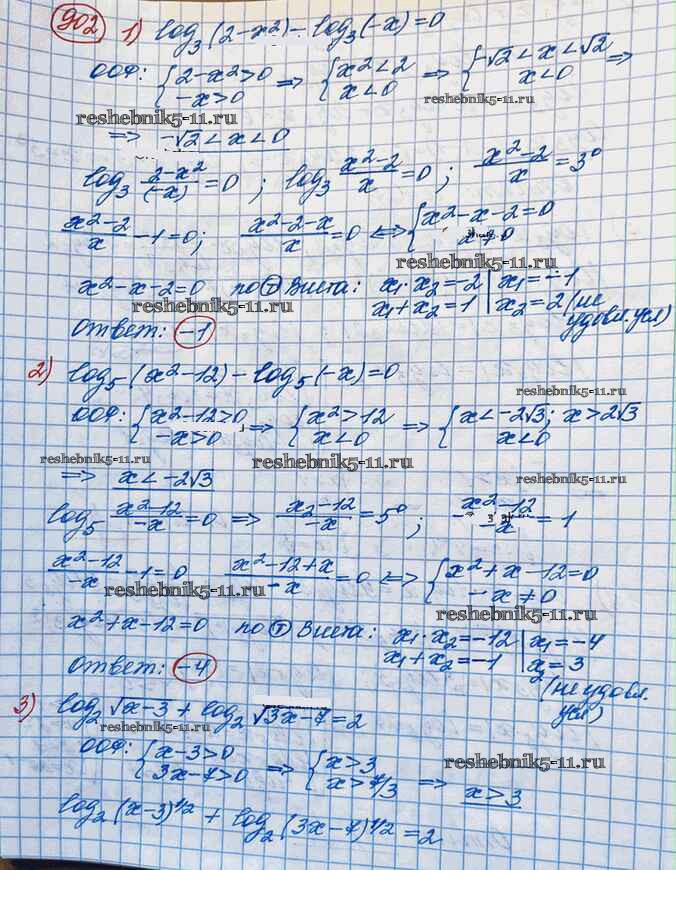 902 1) log₃(2-x²) - log₃(-x) = 0
ООФ: { 2-x²>0 ; -x>0 => { x²<2 ; x<0 => { -√2 < x < √2 ; x<0 =>
reshebnik5-11.ru
reshebnik5-11.ru
=> -√2 < x < 0
log₃ (2-x²)/(-x) = 0 ; log₃ (x²-2)/x = 0 ; (x²-2)/x = 3⁰
(x²-2)/x - 1 = 0; (x²-2-x)/x = 0 <=> { x²-x-2=0 ; x≠0
reshebnik5-11.ru
x²-x-2=0 по Т Виета: x₁·x₂=-2 | x₁=-1
x₁+x₂=1 | x₂=2 (не удовл. усл)
reshebnik5-11.ru
Ответ: -1
2) log₅(x²-12) - log₅(-x) = 0
reshebnik5-11.ru
ООФ: { x²-12>0 ; -x>0 => { x²>12 ; x<0 => { x<-2√3; x>2√3 ; x<0
reshebnik5-11.ru
reshebnik5-11.ru
=> x<-2√3
reshebnik5-11.ru
log₅ (x²-12)/(-x) = 0 => (x₂-12)/(-x) = 5⁰ ; (x²-12)/(-x) = 1
(x²-12)/(-x) - 1 = 0 (x²-12+x)/(-x) = 0 <=> { x²+x-12=0 ; -x≠0
reshebnik5-11.ru
reshebnik5-11.ru
x²+x-12=0 по Т Виета: x₁·x₂=-12 | x₁=-4
x₁+x₂=-1 | x₂=3 (не удовл. усл)
Ответ: -4
3) log₂√x-3 + log₂√3x-7 = 2
reshebnik5-11.ru
ООФ: { x-3>0 ; 3x-7>0 => { x>3 ; x>7/3 => x>3
reshebnik5-11.ru
log₂(x-3)^1/2 + log₂(3x-7)^1/2 = 2